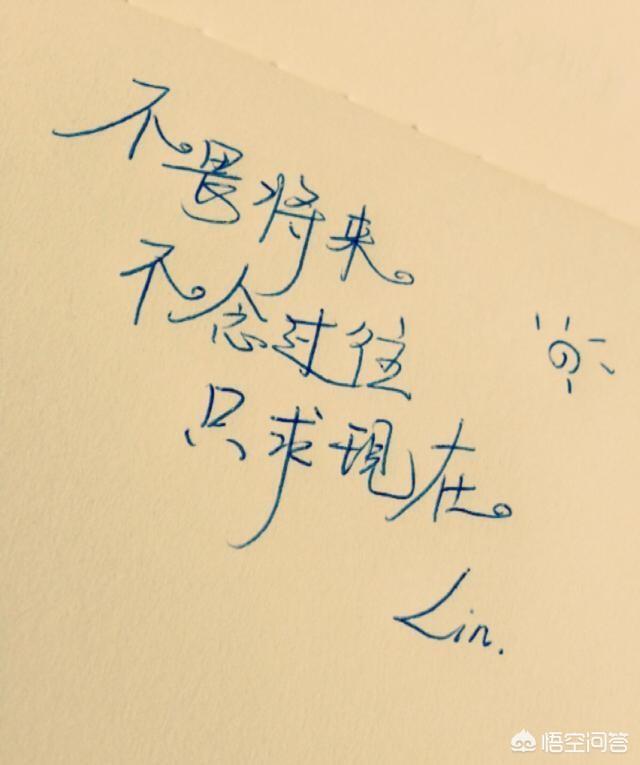 不畏将来。
不念过往
只求現在。
Lin.
悟空问答